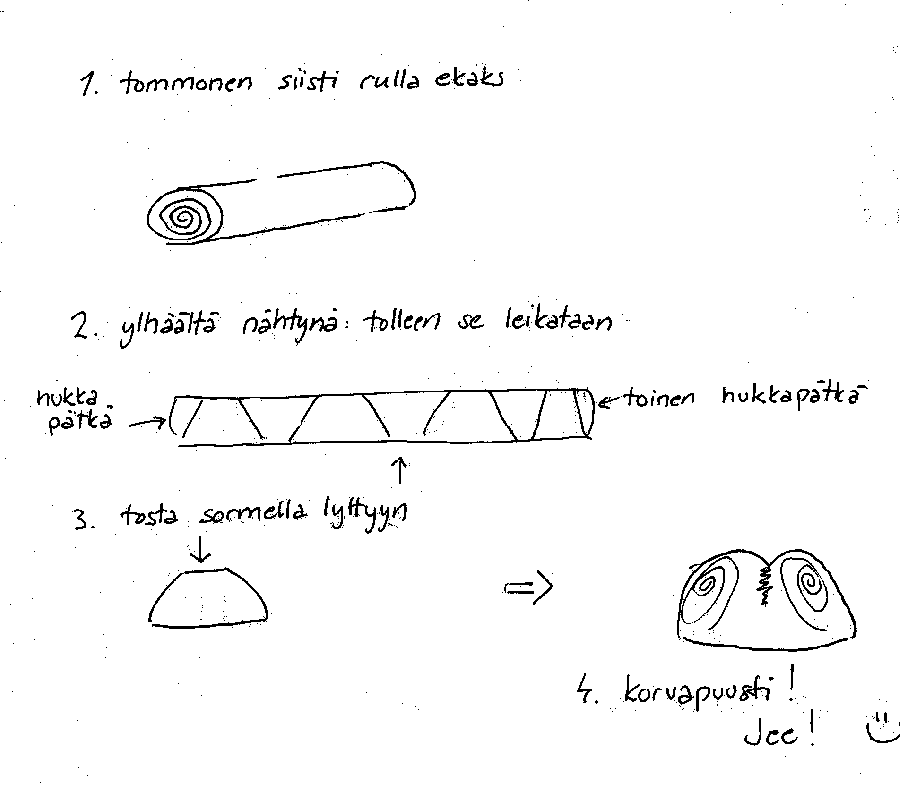 1. tommonen siisti rulla ekaks
2. ylhäältä nähtynä: tolleen se leikataan
hukka
pätkä
toinen hukkapätkä
3. tosta sormella lyttyyn
4. korvapuusti!
Jee!